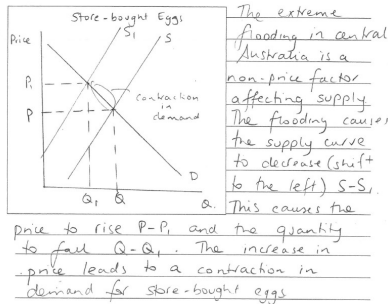 Store-bought Eggs
Price
S₁
S
P₁
P
contraction
in
demand
D
Q₁
Q
Q.
The extreme
flooding in central
Australia is a
non-price factor
affecting supply
The flooding causes
the supply curve
to decrease (shift
to the left) S-S₁
This causes the
price to rise P-P₁ and the quantity
to fall Q-Q₁. The increase in
price leads to a contraction in
demand for store-bought eggs